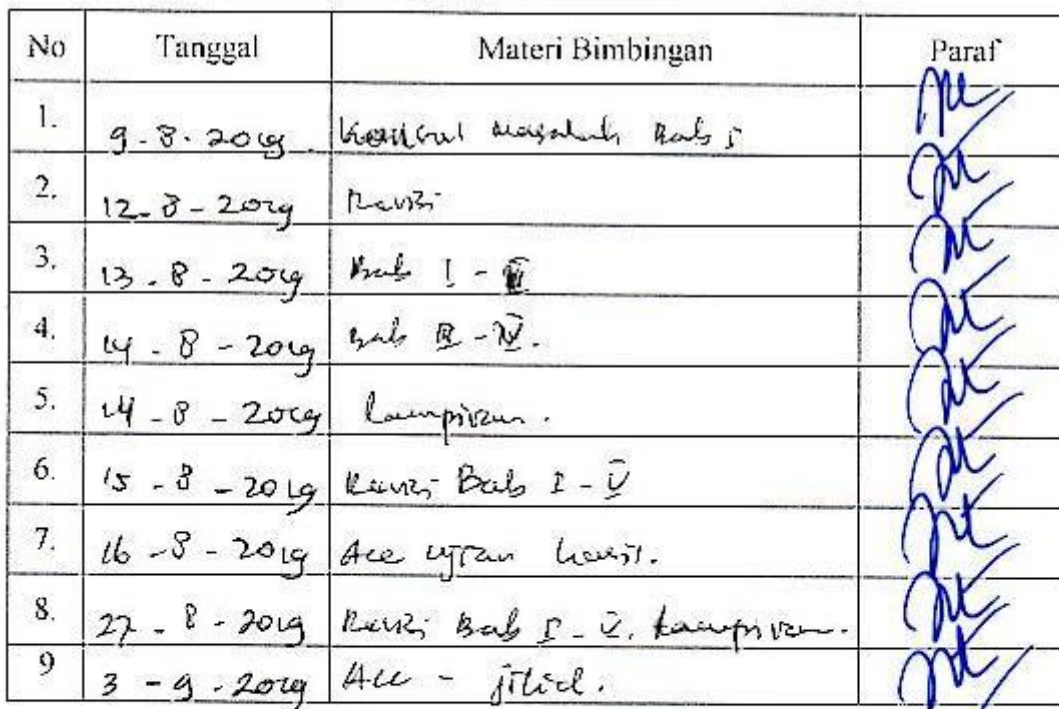 No Tanggal Materi Bimbingan Paraf
1. 9-8-2019. Konsul Masalah Bab I
2. 12-8-2019 Revisi
3. 13-8-2019 Bab I -
4. 14-8-2019 Bab III-IV.
5. 14-8-2019 Lampiran.
6. 15-8-2019 Revisi Bab I-V
7. 16-8-2019 Acc ujian hasil.
8. 27-8-2019 Revisi Bab I-V. Lampiran.
9 3-9-2019 Acc - jilid.